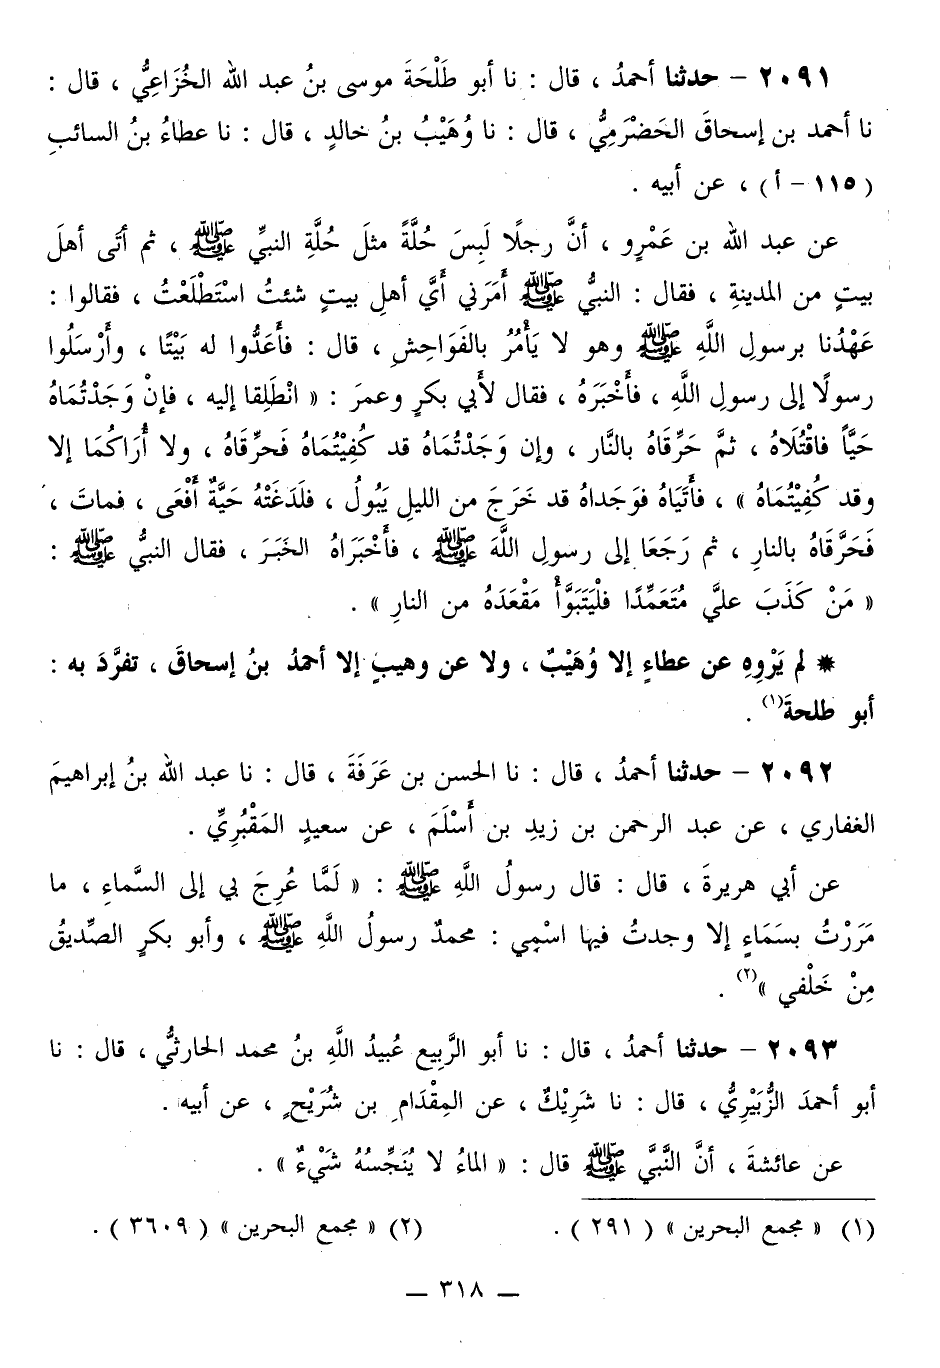 ٢٠٩١ – حدثنا أحمدُ ، قال : نا أبو طَلْحَةَ موسى بنُ عبد الله الخُزَاعِيُّ ، قال :
نا أحمد بن إسحاقَ الحَضْرَمِيُّ ، قال : نا وُهَيْبُ بنُ خالدٍ ، قال : نا عطاءُ بنُ السائبِ
( ١١٥ – أ ) ، عن أبيه .
عن عبد الله بن عَمْرٍو ، أنَّ رجلًا لَبِسَ حُلَّةً مثلَ حُلَّةِ النبيِّ ﷺ ، ثم أتَى أهلَ
بيتٍ من المدينةِ ، فقال : النبيُّ ﷺ أمَرَني أَيَّ أهلِ بيتٍ شئتُ اسْتَطْلَعْتُ ، فقالوا :
عَهْدُنا برسولِ اللَّهِ ﷺ وهو لا يَأْمُرُ بالفَوَاحِشِ ، قال : فأَعَدُّوا له بَيْتًا ، وأَرْسَلُوا
رسولًا إلى رسولِ اللَّهِ ، فأَخْبَرَهُ ، فقال لأَبي بكرٍ وعمرَ : « انْطَلِقا إليه ، فإنْ وَجَدْتُمَاهُ
حَيًّا فاقْتُلَاهُ ، ثمَّ حَرِّقَاهُ بالنَّار ، وإن وَجَدْتُمَاهُ قد كُفِيْتُمَاهُ فَحرِّقَاهُ ، ولا أُرَاكُمَا إلا
وقد كُفِيْتُمَاهُ » ، فأَتَيَاهُ فوَجَداهُ قد خَرَجَ من الليلِ يَبُولُ ، فلَدَغَتْهُ حَيَّةٌ أَفْعَى ، فماتَ ،
فَحَرَّقَاهُ بالنارِ ، ثم رَجَعَا إلى رسولِ اللَّهَ ﷺ ، فأَخْبَرَاهُ الخَبَرَ ، فقال النبيُّ ﷺ :
« مَنْ كَذَبَ عليَّ مُتَعَمِّدًا فلْيَتَبَوَّأْ مَقْعَدَهُ من النارِ » .
* لم يَرْوِهِ عن عطاءٍ إلا وُهَيْبٌ ، ولا عن وهيبٍ إلا أحمدُ بنُ إسحاقَ ، تفرَّدَ به :
أبو طلحةَ(١) .
٢٠٩٢ – حدثنا أحمدُ ، قال : نا الحسن بن عَرَفَةَ ، قال : نا عبد الله بنُ إبراهيمَ
الغفاري ، عن عبد الرحمن بن زيدِ بن أَسْلَمَ ، عن سعيدٍ المَقْبُرِيِّ .
عن أبي هريرةَ ، قال : قال رسولُ اللَّهِ ﷺ : « لَمَّا عُرِجَ بي إلى السَّماءِ ، ما
مَرَرْتُ بسَمَاءٍ إلا وجدتُ فيها اسْمِي : محمدٌ رسولُ اللَّهِ ﷺ ، وأبو بكرٍ الصِّديقُ
مِنْ خَلْفي »(٢) .
٢٠٩٣ – حدثنا أحمدُ ، قال : نا أبو الرَّبِيع عُبيدُ اللَّهِ بنُ محمد الحارثيُّ ، قال : نا
أبو أحمدَ الزُّبَيْرِيُّ ، قال : نا شَرِيْكٌ ، عن المِقْدَامِ بن شُرَيْحٍ ، عن أبيه .
عن عائشةَ ، أنَّ النَّبيَّ ﷺ قال : « الماءُ لا يُنَجِّسُهُ شَيْءٌ » .
(١) « مجمع البحرين » ( ٢٩١ ) . (٢) « مجمع البحرين » ( ٣٦٠٩ ) .
— ٣١٨ —